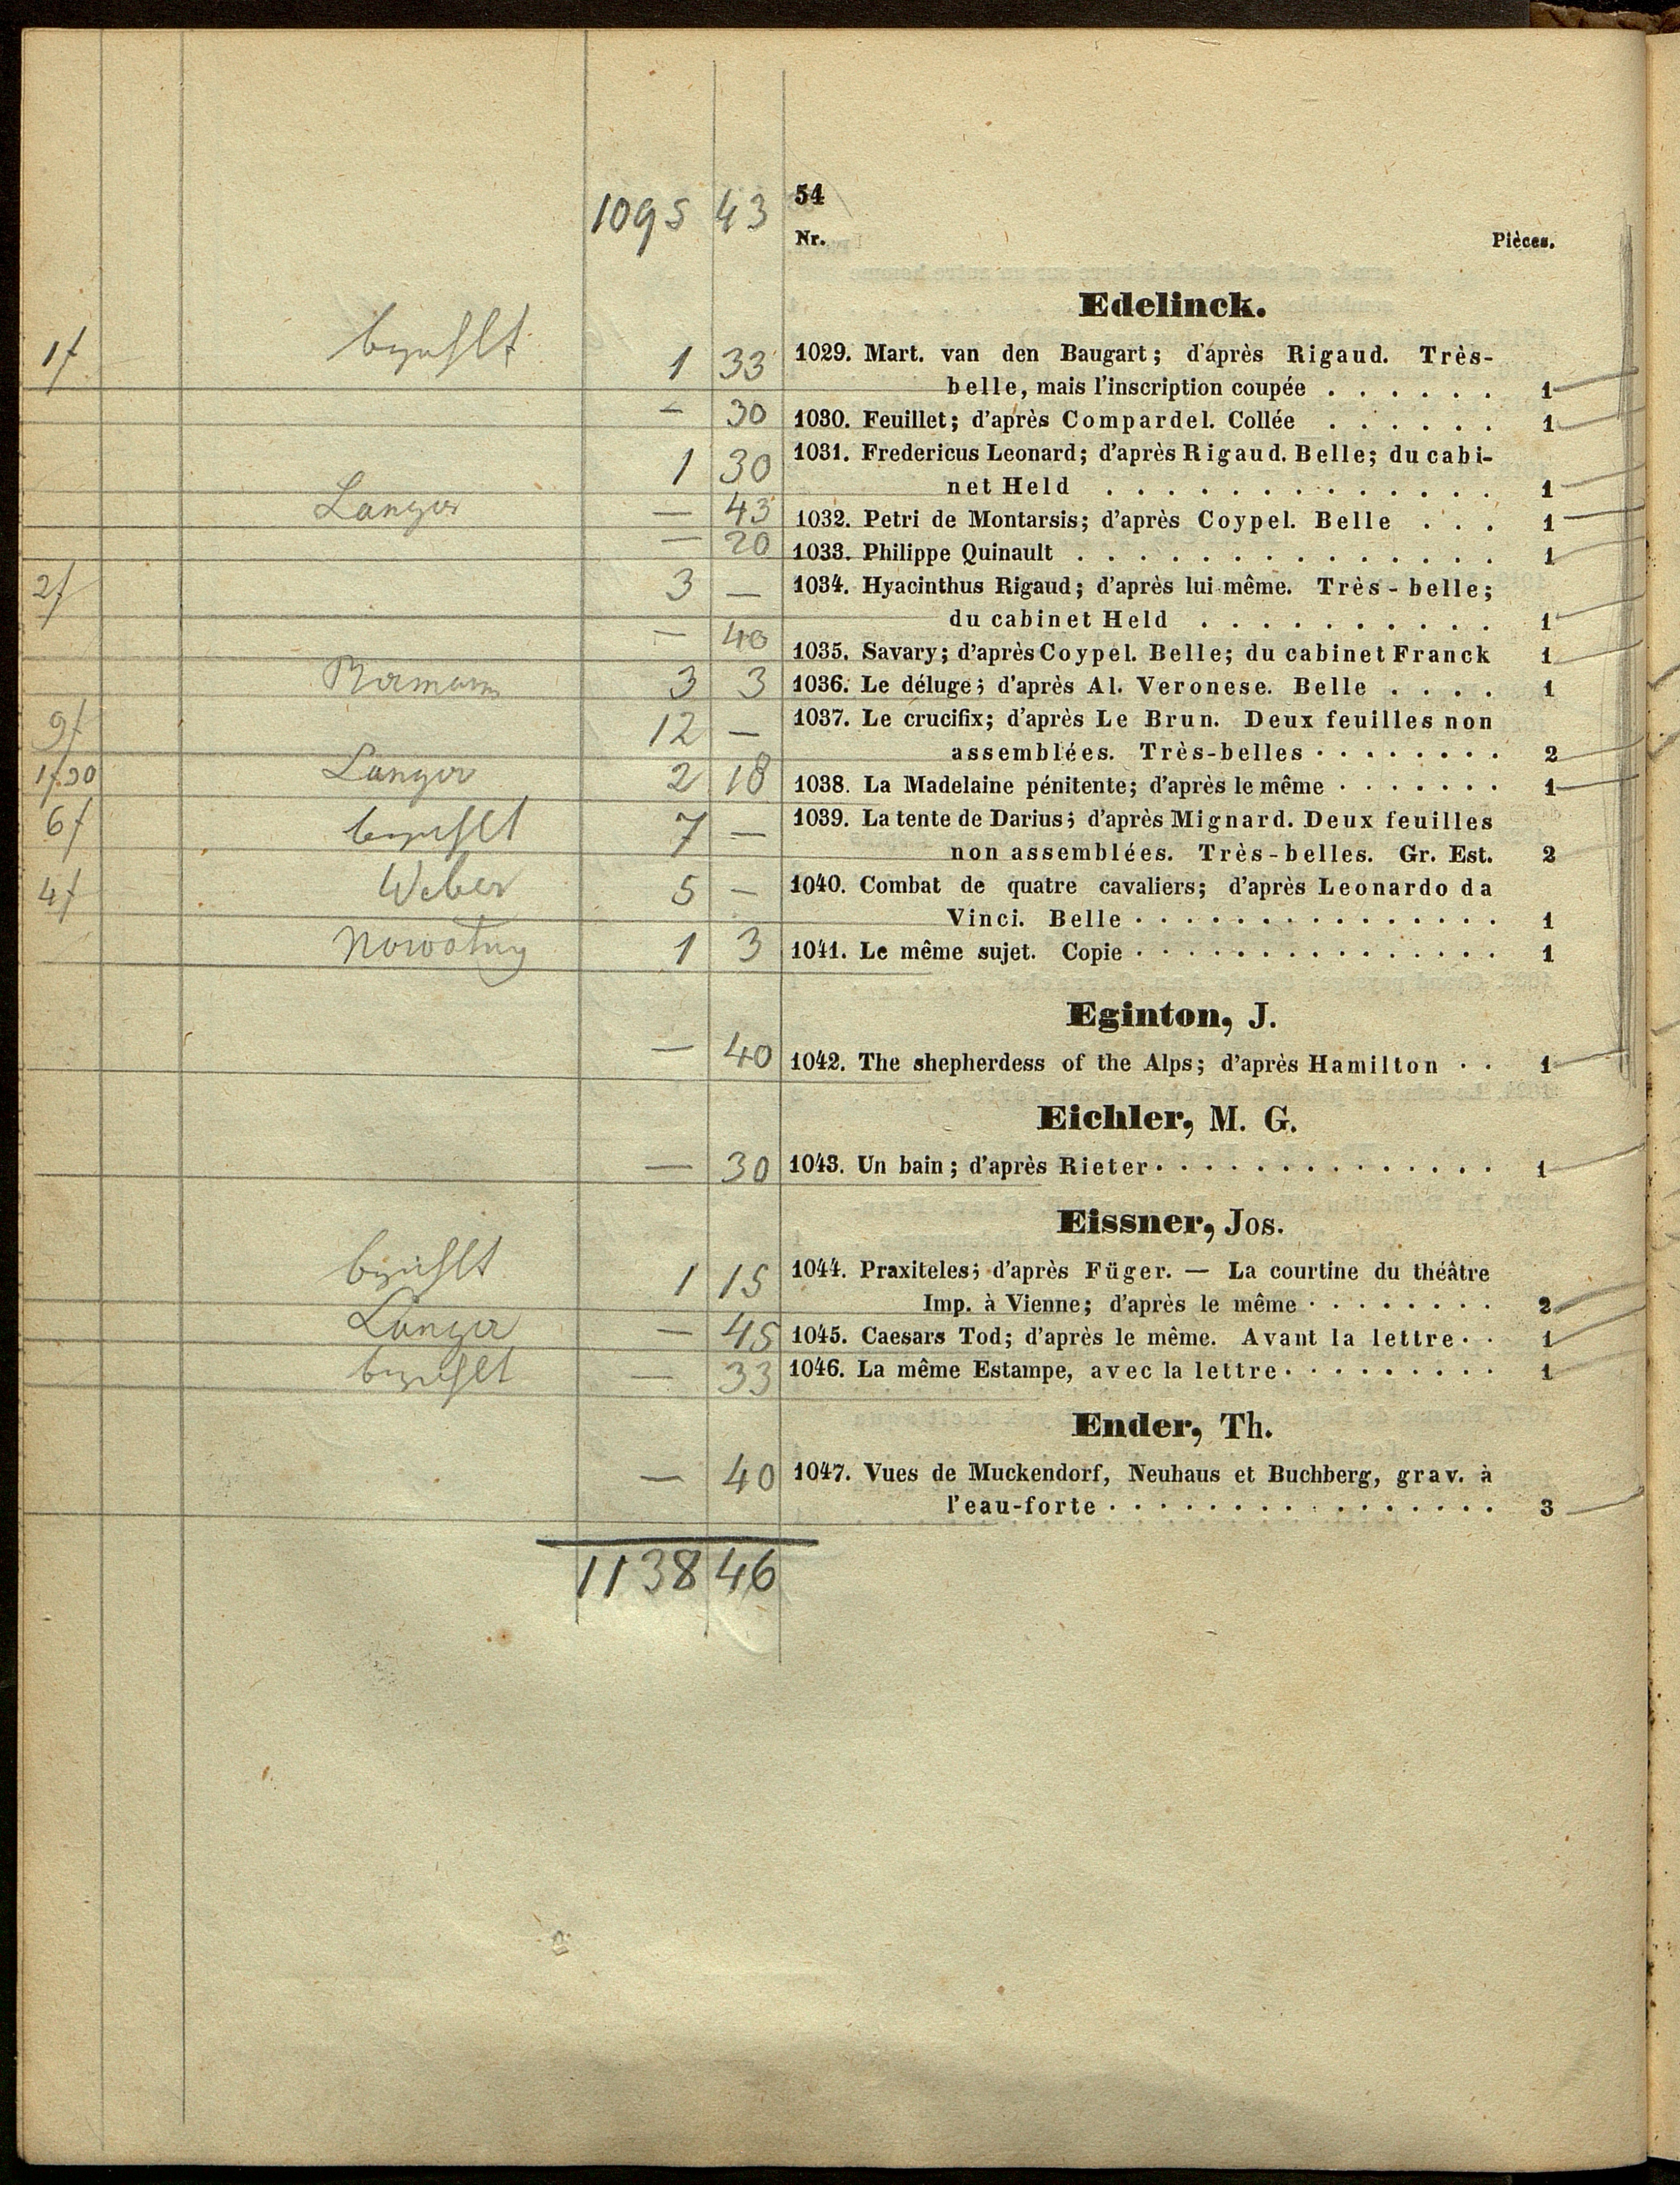 1095 43
54
Nr. Pièces.
Edelinck.
1f bezahlt 1 33 1029. Mart. van den Baugart; d'après Rigaud. Très-
belle, mais l'inscription coupée . . . . . . 1
— 30 1030. Feuillet; d'après Compardel. Collée . . . . . . 1
1 30 1031. Fredericus Leonard; d'après Rigaud. Belle; du cabi-
net Held . . . . . . . . . . . . 1
Langer — 43 1032. Petri de Montarsis; d'après Coypel. Belle . . . 1
— 20 1033. Philippe Quinault . . . . . . . . . . . . . 1
2f 3 — 1034. Hyacinthus Rigaud; d'après lui même. Très-belle;
du cabinet Held . . . . . . . . . . 1
— 40 1035. Savary; d'après Coypel. Belle; du cabinet Franck 1
3 3 1036. Le déluge; d'après Al. Veronese. Belle . . . . 1
9f 12 — 1037. Le crucifix; d'après Le Brun. Deux feuilles non
assemblées. Très-belles . . . . . . . . 2
1f.30 Langer 2 18 1038. La Madelaine pénitente; d'après le même . . . . . . . 1
6f bezahlt 7 — 1039. La tente de Darius; d'après Mignard. Deux feuilles
non assemblées. Très-belles. Gr. Est. 2
4f Weber 5 — 1040. Combat de quatre cavaliers; d'après Leonardo da
Vinci. Belle . . . . . . . . . . . . . . . 1
Nowotny 1 3 1041. Le même sujet. Copie . . . . . . . . . . . . . . . 1
Eginton, J.
— 40 1042. The shepherdess of the Alps; d'après Hamilton . . 1
Eichler, M. G.
— 30 1043. Un bain; d'après Rieter . . . . . . . . . . . . . . 1
Eissner, Jos.
bezahlt 1 15 1044. Praxiteles; d'après Füger. — La courtine du théâtre
Imp. à Vienne; d'après le même . . . . . . . . 2
Langer — 45 1045. Caesars Tod; d'après le même. Avant la lettre . . 1
bezahlt — 33 1046. La même Estampe, avec la lettre . . . . . . . . . 1
Ender, Th.
— 40 1047. Vues de Muckendorf, Neuhaus et Buchberg, grav. à
l'eau-forte . . . . . . . . . . . . . . . . 3
1138 46